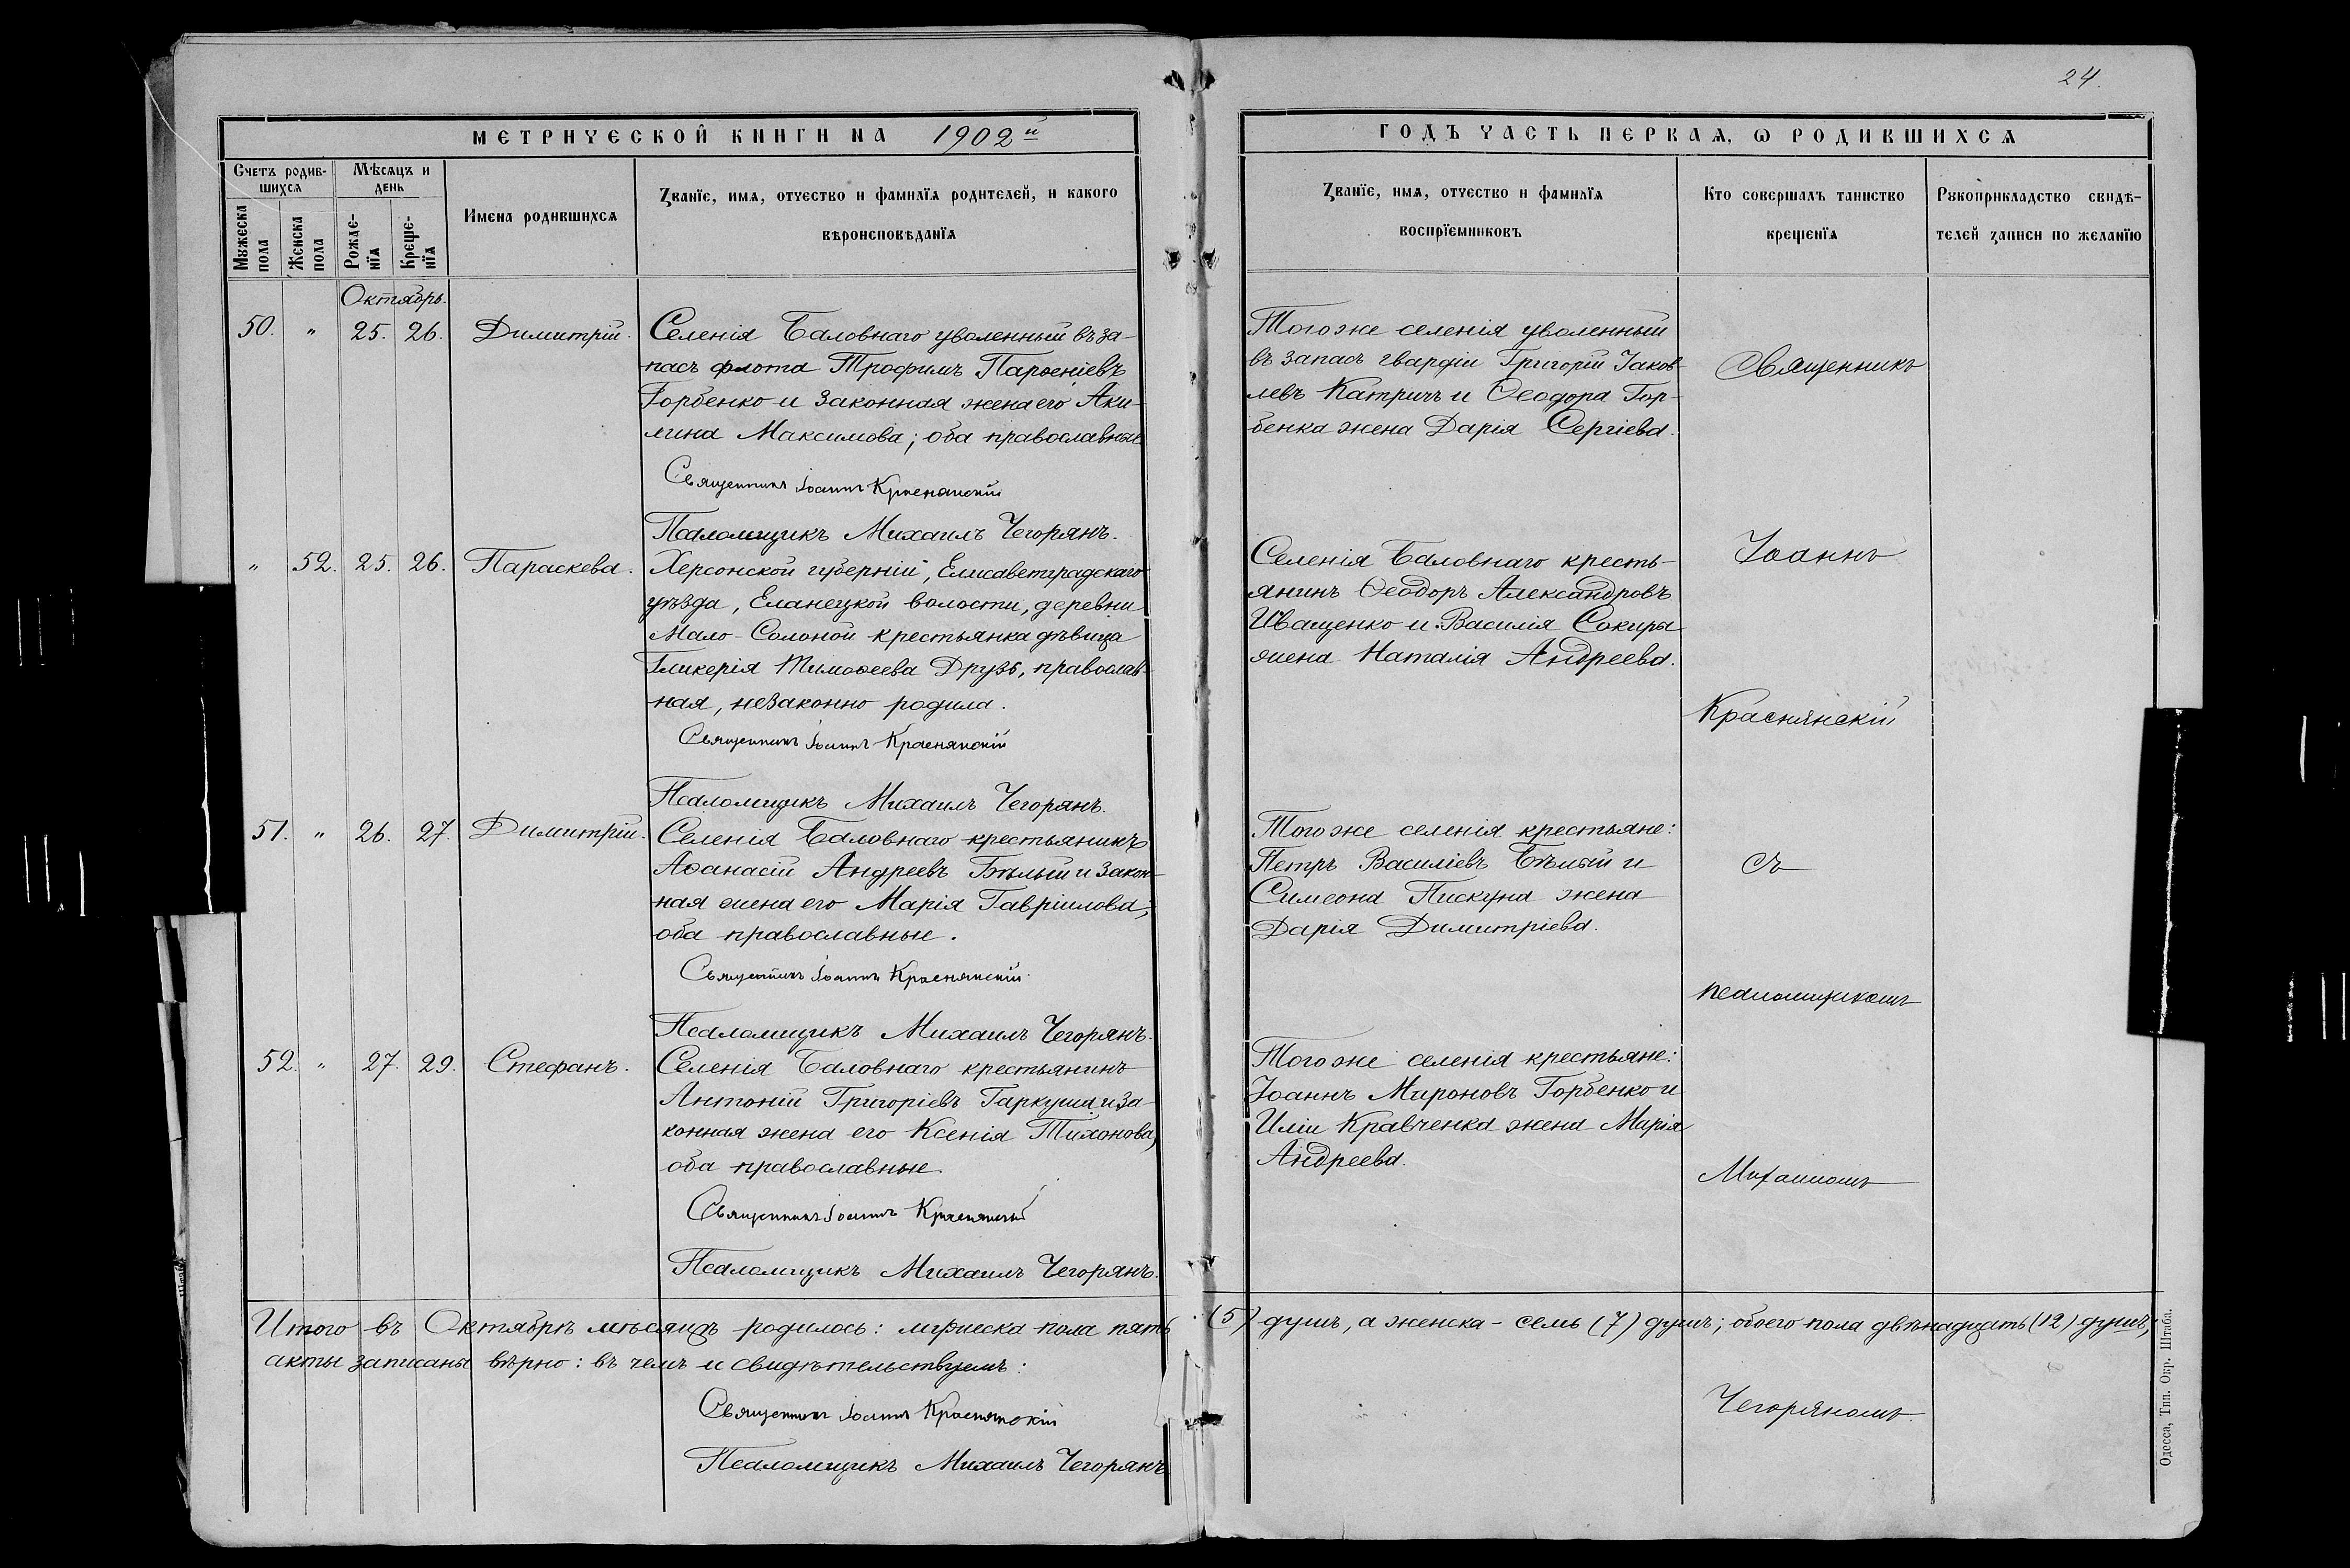 24.
МЕТРИЧЕСКОЙ КНИГИ НА 1902й
ГОДЪ ЧАСТЬ ПЕРВАЯ, Ѡ РОДИВШИХСЯ
Счетъ родив-
шихся
Мужеска пола
Женска пола
Мѣсяцъ и
день
Рожде-
нїя
Креще-
нїя
Имена родившихся
Званїе, имя, отчество и фамилїя родителей, и какого
вѣроисповѣданїя
Званїе, имя, отчество и фамилїя
воспрїемниковъ
Кто совершалъ таинство
крещенїя
Рукоприкладство свидѣ-
телей записи по желанїю
Октябрь.
50. " 25. 26. Димитрій. Селенія Баловнаго уволенный въ за-
пасъ флота Трофимъ Парѳеніевъ
Горбенко и законная жена его Аки-
лина Максимова; оба православные.
Священникъ Іоаннъ Краснянскій
Псаломщикъ Михаилъ Чегорянъ.
" 52. 25. 26. Параскева. Херсонской губерніи, Елисаветградскаго
уѣзда, Еланецкой волости, деревни
Мало-Солоной крестьянка дѣвица
Гликерія Тимоѳеева Друзь, православ-
ная, незаконно родила.
Священникъ Іоаннъ Краснянскій
Псаломщикъ Михаилъ Чегорянъ.
51. " 26. 27. Димитрій. Селенія Баловнаго крестьянинъ
Аѳанасій Андреевъ Бѣлый и закон-
ная жена его Марія Гавріилова;
оба православные.
Священникъ Іоаннъ Краснянскій.
Псаломщикъ Михаилъ Чегорянъ.
52. " 27. 29. Стефанъ. Селенія Баловнаго крестьянинъ
Антоній Григоріевъ Гаркуша и за-
конная жена его Ксенія Тихонова,
оба православные.
Священникъ Іоаннъ Краснянскій
Псаломщикъ Михаилъ Чегорянъ.
Тогоже селенія уволенный
въ запасъ гвардіи Григорій Іаков-
левъ Катричъ и Ѳеодора Гор-
бенка жена Дарія Сергіева.
Селенія Баловнаго кресть-
янинъ Ѳеодоръ Александровъ
Иващенко и Василія Сокиры
жена Наталія Андреева.
Тогоже селенія крестьяне:
Петръ Василіевъ Бѣлый и
Симеона Пискуна жена
Дарія Димитріева.
Тогоже селенія крестьяне:
Іоаннъ Мироновъ Горбенко и
Иліи Кравченка жена Марія
Андреева.
Священникъ
Іоаннъ
Краснянскій
съ
псаломщикомъ
Михаиломъ
Чегоряномъ.
Итого въ Октябрѣ мѣсяцѣ родилось: мужеска пола пять (5) душъ, а женска - семь (7) душъ; обоего пола двѣнадцать (12) душъ,
акты записаны вѣрно: въ чемъ и свидѣтельствуемъ:
Священникъ Іоаннъ Краснянскій
Псаломщикъ Михаилъ Чегорянъ
Одесса, Тип. Окр. Штаба.